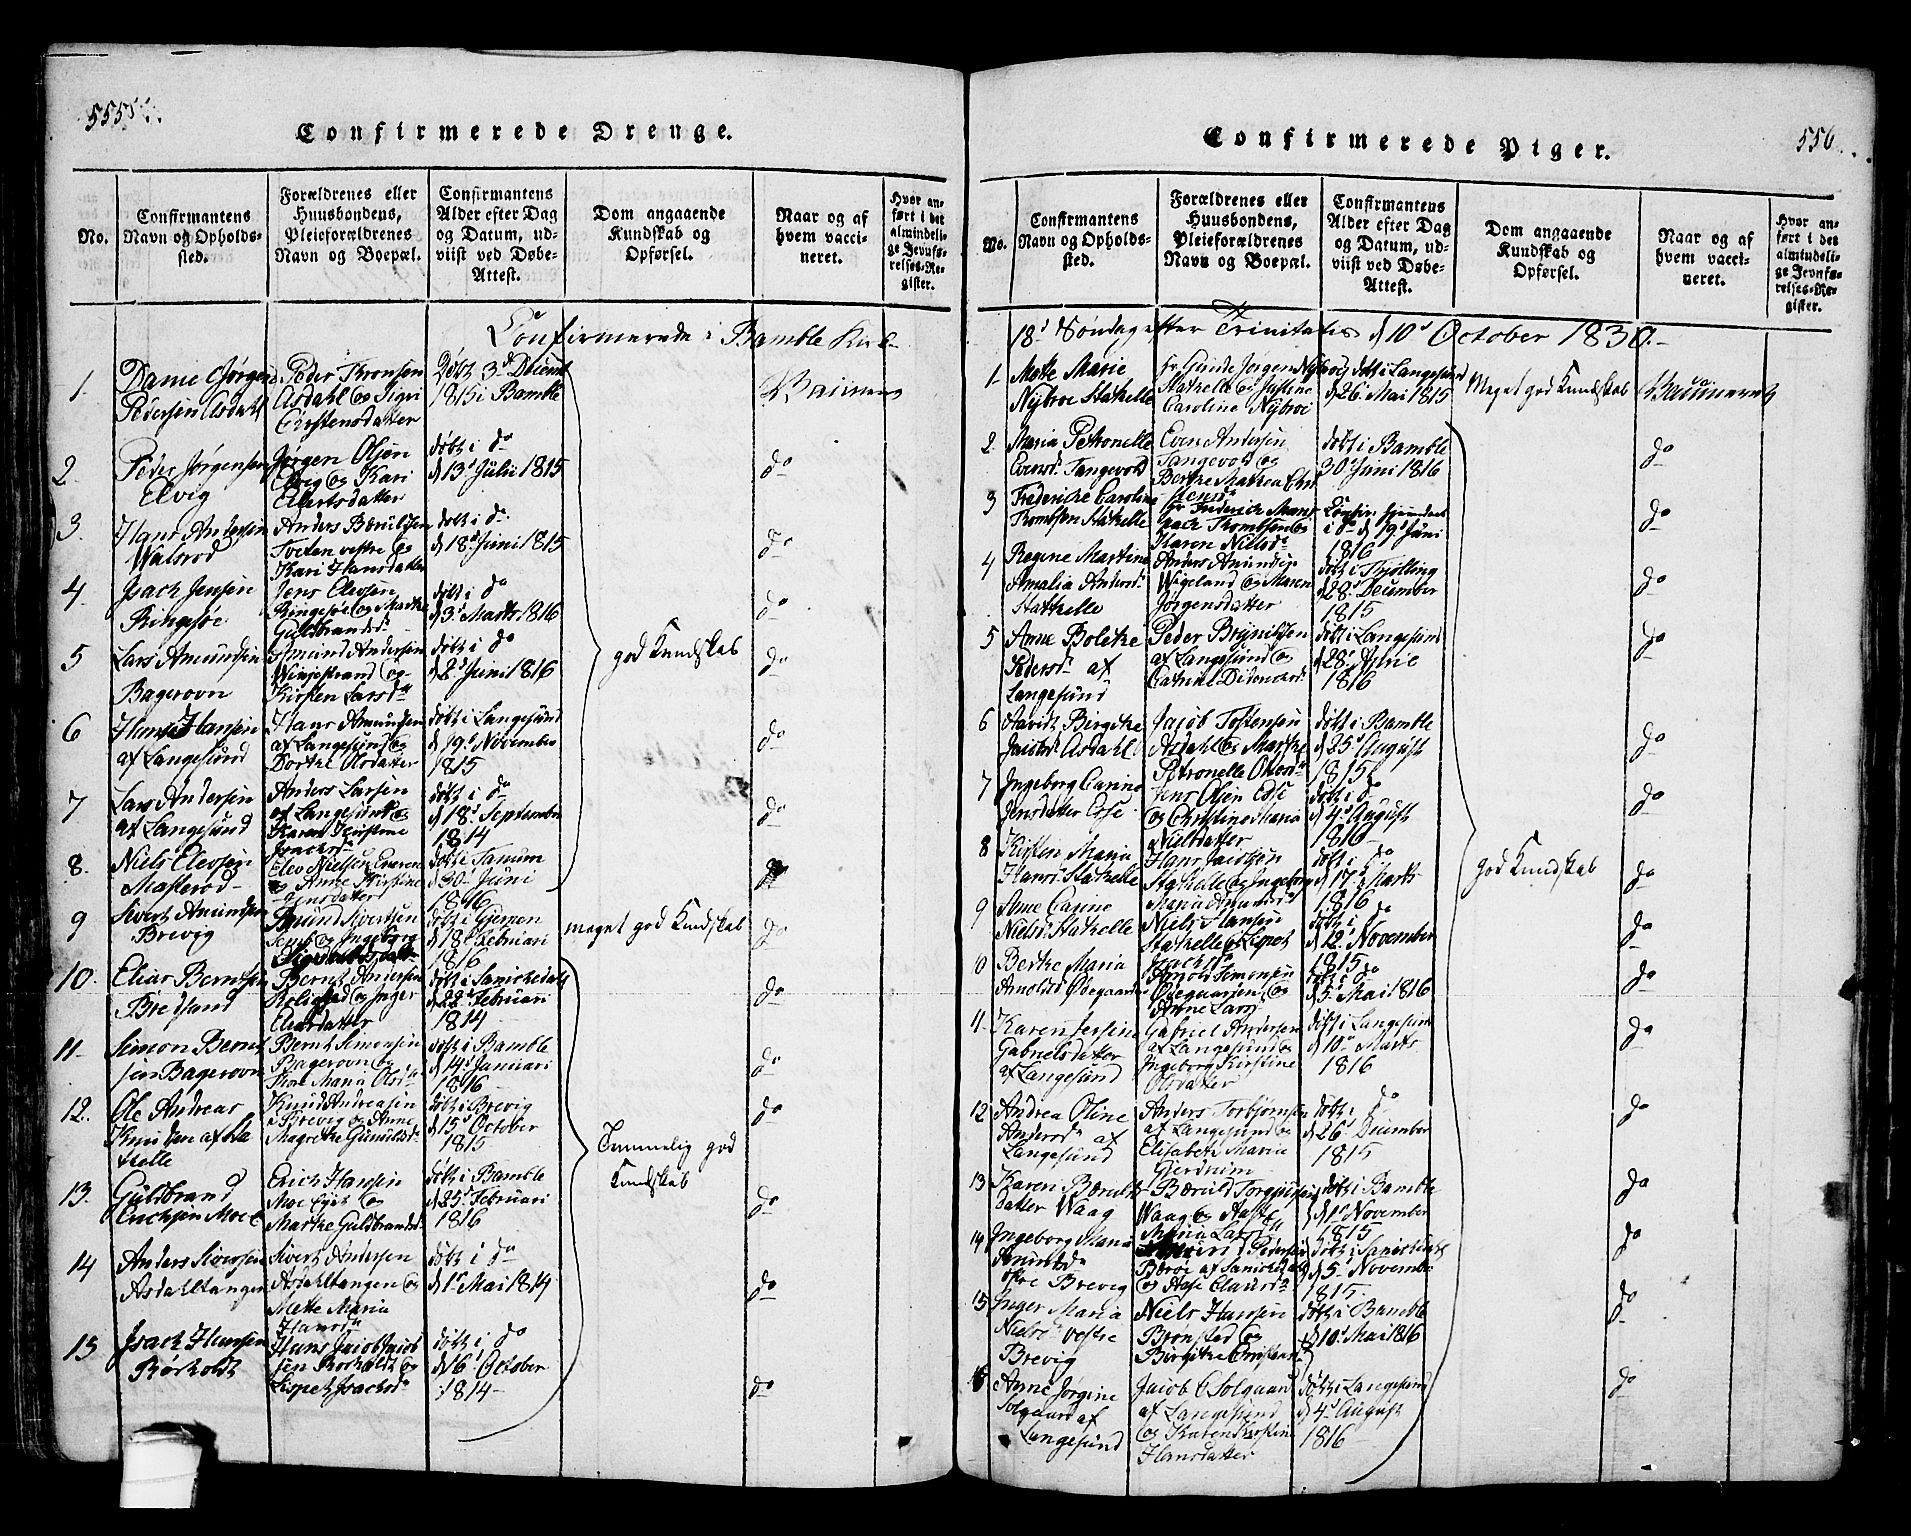 555
Confirmerede Drenge.
No.
Confirmantens
Navn og Opholds-
sted.
Forældrenes eller
Huusbondens,
Pleieforældrenes
Navn og Boepæl.
Confirmantens
Alder efter Dag
og Datum, ud-
viist ved Døbe-
Attest.
Dom angaaende
Kundskab og
Opførsel.
Naar og af
hvem vacci-
neret.
Hvor an-
ført i det
almindeli-
ge Jevnfø-
relses-Re-
gister.
Confirmerede i Bamble Kirke
1
Peder
Asdahl og Sigri
Døbt 3d
1815 i Bamble
2.
Peder Jørgensen
Elvig
Jørgen Olsen
Elvig og Kari
døbt i do
d 13d Julii 1815
do
3.
Hans Andersen
Valsrod
Tveten vestre og
Kari Hansdatter
døbt i do
d 18d Juni 1815
do
4.
Isach Jensen
Ringsøe
Jens Elevsen
Ringsøe og Marthe
Guldbrandsdr
døbt i do
d 3d Marts 1816
do
5
Lars Amundsen
Bagerovn
Amund Andersen
og
Kirsten Larsdr
døbt i do
d 2d Juni 1816
god Kundskab
do
6
Hans Hansen
af Langesund
Hans Amundsen
af Langesund og
Dorthe Olsdatter
døbt i Langesund
d 19d November
1815
do
7
Lars Andersen
af Langesund
Anders Larsen
af Langesund og
Karen Kirstine
Isachsdr
døbt i do
d 18d September
1814
do
8.
Niels Elevsen
Elev Nielsen
og Anne Kirstine
Jensdatter
døbt i Sanum
d 30d Juni
1816
9
Sivert Amundsen
Brevig
Amund Sivertsen
og Ingeborg
døbt i Gjerpen
d 18d Februari
1816
meget god Kundskab
do
10.
Elias Berntsen
Bernt Andersen
og Inger
Eliasdatter
døbt i Sanichedahl
d 22d Februari
1814
do
11.
Simon Bernt
sen Bagerovn
Bernt Simonsen
Bagerovn og
Maria Olsdr
døbt i Bamble
d 14d Januari
1816
do
12.
Ole Andreas
Knudsen af Sta
thelle
Knud Andreasen
Brevig og Anne
Magrethe Gunulfsdr
døbt i Brevig
d 15d October
1815
Temmelig god
Kundskab
do
13.
Guldbrand
Erichsen Moe
Erich Hansen
Moe og
Marthe Guldbrandsdr
døbt i Bamble
d 25d Februari
1816
do
14
Anders Sivertsen
Asdahltangen
Sivert Andersen
Asdahltangen og
Mette Maria
Hansdr
døbt i do
d 1d Mai 1814
do
15
Isach Hansen
Rørholdt
Hans Jacob Jacob
sen Rørholdt og
Lispet Isachsdr
døbt i do
d 16d October
1814
do
556
Confirmerede Piger.
No.
Confirmantens
Navn og Opholds-
sted.
Forældrenes eller
Huusbondens,
Pleieforældrenes
Navn og Boepæl.
Confirmantens
Alder efter Dag
og Datum, ud-
viist ved Døbe-
Attest.
Dom angaaende
Kundskab og
Opførsel.
Naar og af
hvem vacci-
neret.
Hvor an-
ført i det
almindeli-
ge Jevnfø-
relses-Re-
gister.
18d Søndag efter Trinitatis d 10d October 1830.
1
Mette Marie
Nybroe Stathelle
Stathelle og Justine
Caroline Nybroe
døbt i Langesund
d 26d Mai 1815
Meget god Kundskab
Vaccineret
2
Maria Petronelle
Evensdr Tangevold
Even Andersen
Tangevold og
Berthe Mathea Chri
stensdr
døbt i Bamble
30d Juni 1816
do
3
Frederiche Caroline
Thomsen Stathelle
Karen Nielsdr
i do d 19d Juni
1816
do
4
Regine Martine
Amalia Andersdr
Stathelle
Anders
Wigeland og Maren
Jørgensdatter
døbt i Tjølling
d 28d December
1815
do
5
Anne Bolethe
Pedersdr af
Langesund
Peder Brynildsen
af Langesund og
døbt i Langesund
d 28d
1816
do
6
Birgithe
Jacobsdr Asdahl
Jacob Tostensen
Asdahl og Marthe
Petronelle Olsdr
døbt i Bamble
d 25d August
1815
do
7
Ingeborg Carine
Jensdatter
Jens Olsen
og Christine Maria
Nielsdatter
døbt i do
d 4d August
1816
do
8
Kirsten Maria
Hansdr Stathelle
Hans Jacobsen
Stathelle og Ingeborg
Maria
døbt i do
d 17d Marts
1816
god Kundskab
do
9
Anne Carine
Nielsdr Stathelle
Niels Hansen
Stathelle og Lispet
Isachsdr
døbt i do
d 12d November
1815
do
10
Berthe Maria
Arnoldsdr Ødegaarden
Arnold Simonsen
Ødegaarden og
Anne Larsdr
døbt i do
d 5d Mai 1816
do
11.
Karen
Gabrielsdatter
af Langesund
Gabriel Andersen
af Langesund og
Ingeborg Kirstine
Olsdatter
døbt i Langesund
d 10d Marts
1816
do
12
Andrea Oline
Andersdr af
Langesund
Anders Torbjørnsen
af Langesund og
Elisabeth Maria
Gjerdrum
døbt i do
d 26d December
1815
do
13
Karen Bærulfs
datter Waag
Bærulf
Waag og Aase
Maria Larsdr
døbt i Bamble
d 1d November
1815
do
14
Ingeborg Maria
Brevig
Pedersen
og Aase Clausdr
døbt i Sanichedahl
d 5d November
1815
do
15
Inger Maria
Nielsdr vestre
Brevig
Niels Hansen
Brønsted og
Birgithe Christensdr
døbt i Bamble
d 10d Mai 1816
do
16
Anne Jørgine
Solgaard af
Langesund
Jacob C Solgaard
af Langesund
og Karen Kirstine
Hansdatter
døbt i Langesund
d 4d August
1816
do